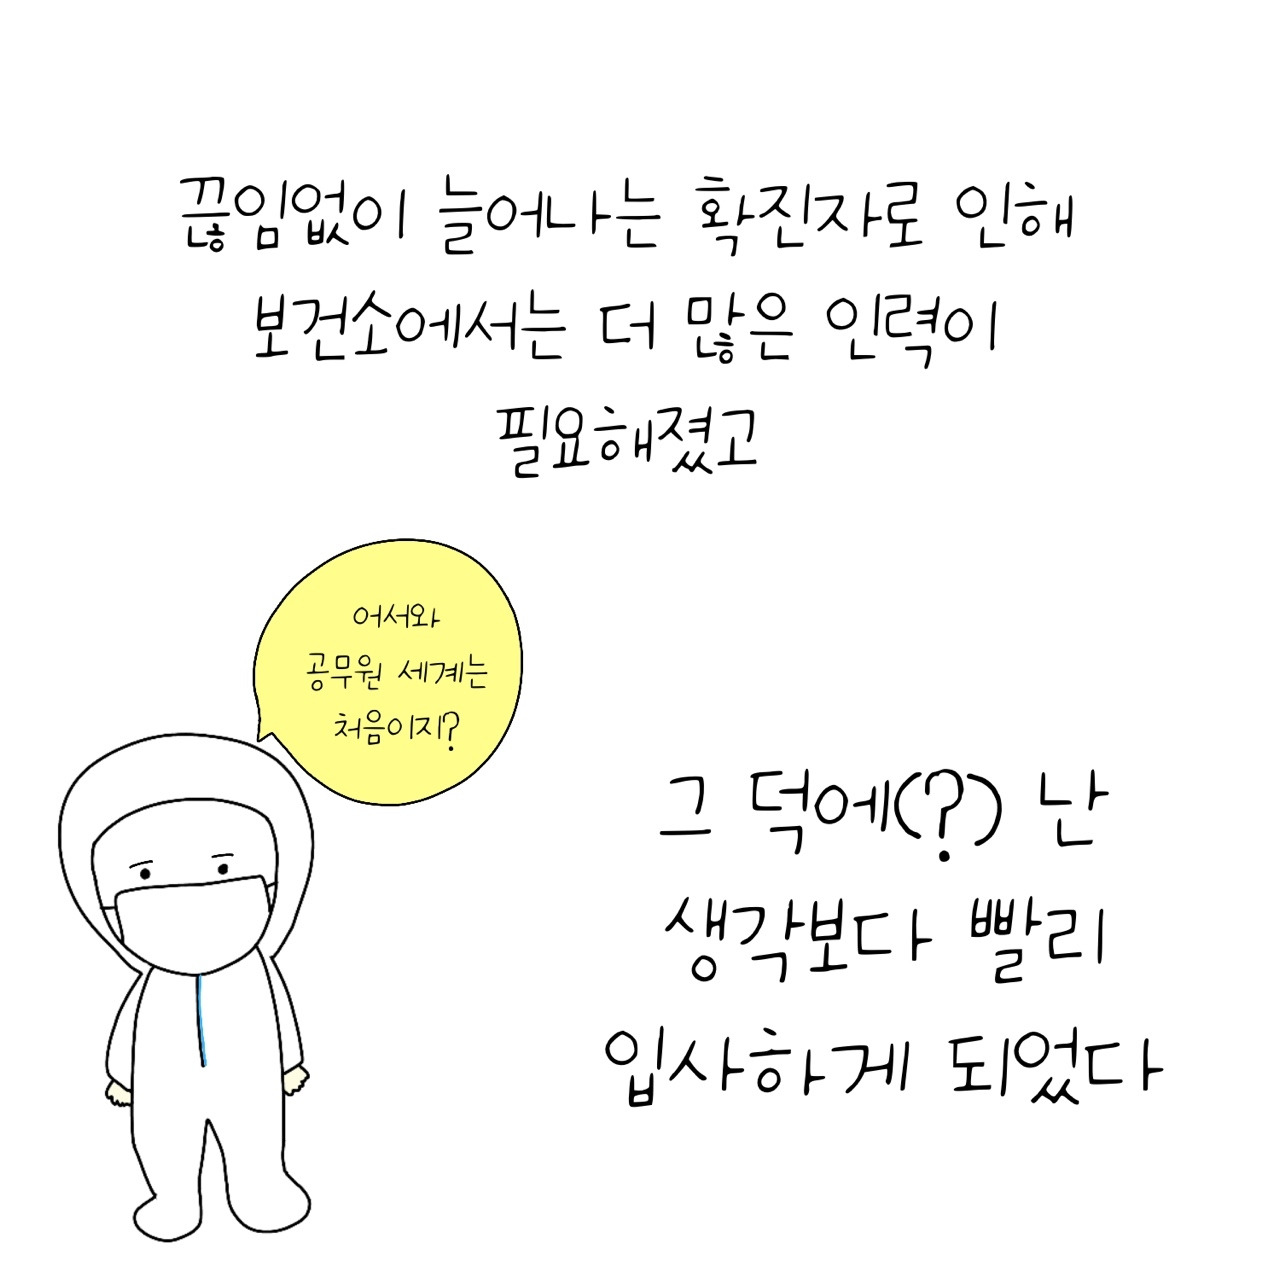 끊임없이 늘어나는 확진자로 인해
보건소에서는 더 많은 인력이
필요해졌고
어서와
공무원 세계는
처음이지?
그 덕에(?) 난
생각보다 빨리
입사하게 되었다